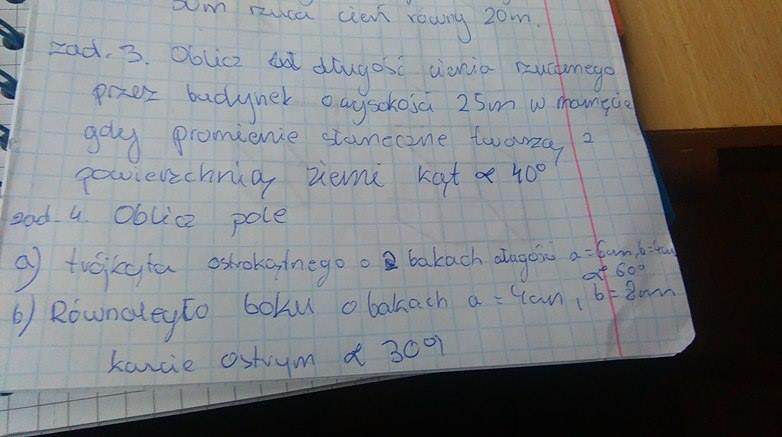 50m rzuca cień równy 20m.
zad. 3. Oblicz długość cienia rzucanego
przez budynek o wysokości 25m w momęcie
gdy promienie słoneczne tworzą z
powierzchnią ziemi kąt α 40°
zad. 4. Oblicz pole
a) trójkąta ostrokątnego o 2 bokach długości a = 6cm, b = 4cm
α 60°
b) Równoległo boku o bokach a = 4cm, b = 8cm
kącie ostrym α 30°